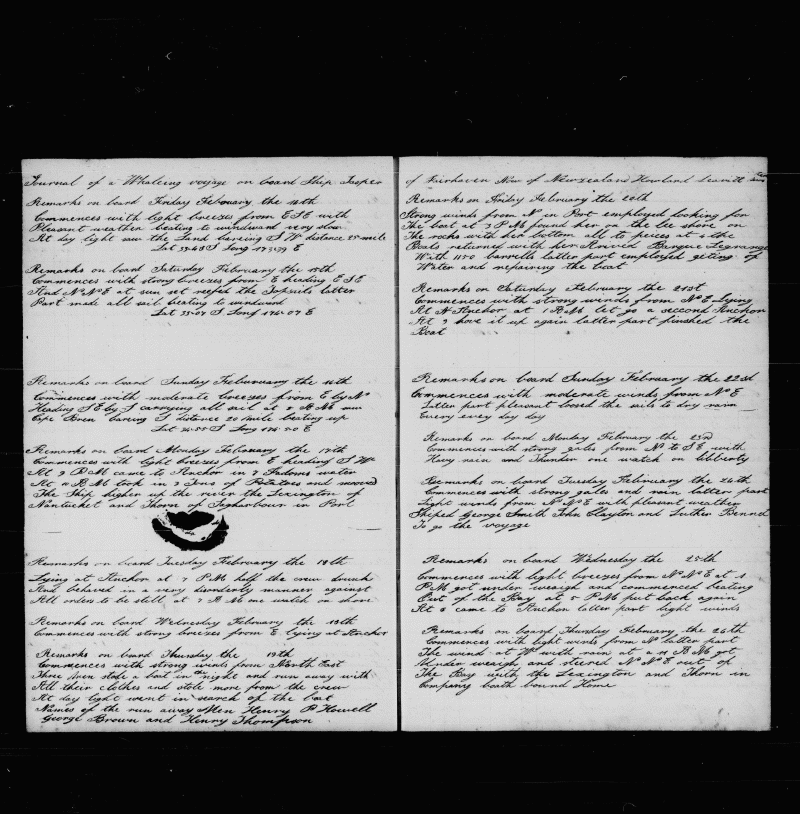 Journal of a Whaleing voyage on board Ship Jasper
Remarks on board Friday February the 14th
Commences with light breezes from ESE with
Pleasant weather beating to windward very slow
At day light saw the Land bearing SW distance 25 mile
Lat S Long E
Remarks on board Saturday February the 15th
Commences with strong breezes from E heading ESE
And NNE at sun set reefed the Topsails latter
Part made all sail beating to windward
Lat 35-07 S Long 174-07 E
Remarks on board Sunday February the 16th
Commences with moderate breezes from E by N
Heading SE by S carrying all sail at AM saw
Cape Bren baring S distance 20 miles beating up
Lat S Long E
Remarks on board Monday February the 17th
Commences with light breezes from E heading SW
At 9 PM came to Anchor in 7 Fadoms water
At AM took in 2 Tons of Potatoes and moved
The Ship higher up the river the Lexington of
Nantucket and Thorn of Sagharbour in Port
Remarks on board Tuesday February the 18th
Lying at Anchor at 7 PM half the crew drunk
And behaved in a very disorderly manner against
All orders to be still at 7 AM one watch on shore
Remarks on board Wednesday February the 19th
Commences with strong breezes from E lying at Anchor
Remarks on board Thursday the 19th
Commences with strong winds from North East
Three Men stole a boat in the night and run away with
All their clothes and stole more from the crew
At day light went in search of the boat
Names of the run away Men Henry P Howell
George Brown and Henry Thompson
of Fairhaven Now of Newzealand Howland
Remarks on Friday February the 20th
Strong winds from N in Port employed looking for
The boat at 3 PM found her on the lee shore on
The rocks with her bottom all to peices at 4 the
Boats returned with her Arived Barque Legrange
With 1150 barrells latter part employed geting of
Water and repairing the boat
Remarks on Saturday February the 21st
Commences with strong winds from NE Lying
At Anchor at 1 AM let go a second Anchor
At 9 hove it up again latter part finshed the
Boat
Remarks on board Sunday February the 22nd
Commences with moderate winds from NE
Latter part pleasant loosed the sails to dry rain
Every every day day
Remarks on board Monday February the 23rd
Commences with strong gales from N to SE with
Havy rain and Thunder one watch on libberty
Remarks on board Tuesday February the 24th
Commences with strong gales and rain latter part
Light winds from NNE with pleasant weather
Shiped George Smith John Clayton and Luther Bennet
To go the voyage
Remarks on board Wednesday the 25th
Commences with light breezes from NNE at 1
PM got under weaigh and commenced beating
Out of the Bay at PM put back again
At 8 came to Anchor latter part light winds
Remarks on board Thursday February the 26th
Commences with light winds from N latter part
The wind at W with rain at AM got
Under weaigh and steered NNE out of
The Bay with the Lexington and Thorn in
Company boath bound Home